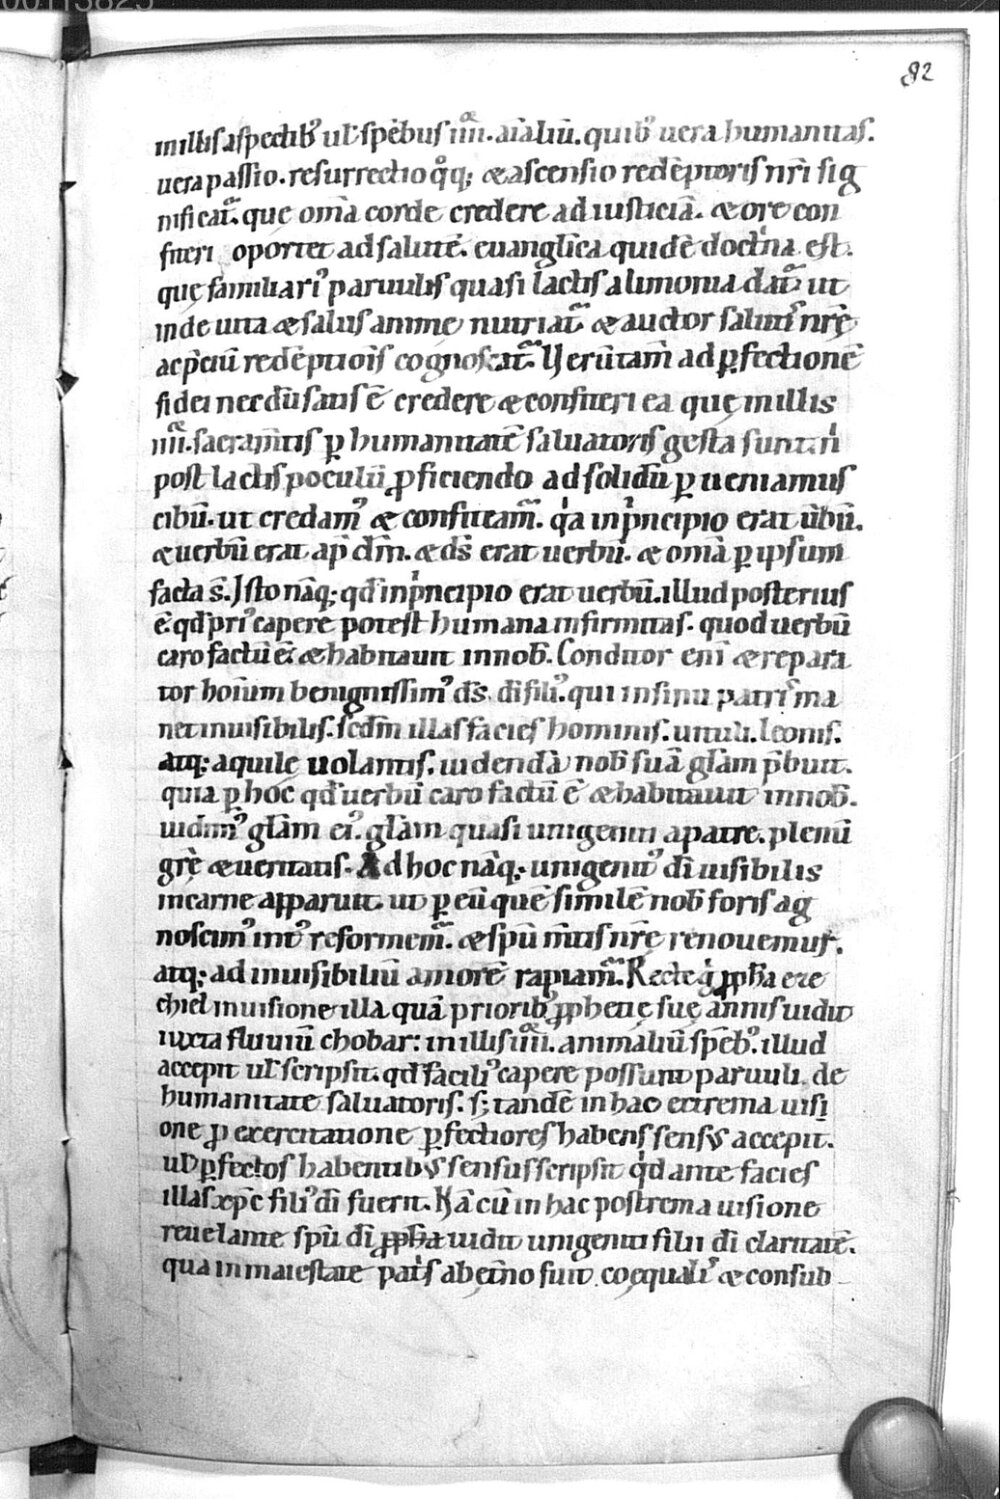 00113825
82
in illis aspectib᷒ ul̄ spēbus iiii. aı̄aliū. quib᷒ uera humanitas.
uera passio. resurrectio qͦq; & ascensio redēptoris nr̄i sig
nificat᷑. que om̄a corde credere ad iusticiā. & ore con
fiteri oportet ad salutē. euanglīca quidē doctͥna est.
quę familiari᷒ paruulis quasi lactis alimonia dat᷑ ut
inde uita & salus anime nutriat᷑. & auctor salutis nr̄ę
ac p̄ciū redēptiois̄ cognoscat᷑. Verūtam̄ ad ꝑfectionē
fidei necdū satis ē credere & confiteri ea quę in illis
iiii. sacram̄tis ꝑ humanitatē saluatoris gesta sunt. nͥ
post lactis poculū ꝓficiendo ad solidū ꝑueniamus
cibū. ut credam᷒ & confiteam᷑. qͥa in pͥncipio erat ūbū.
& uerbū erat ap̄ dm̄. & ds̄ erat uerbū. & om̄a ꝑ ipsum
facta s̄. Isto nāq; qd̄ in pͥncipio erat uerbū. illud posterius
ē. qd̄ pri᷒ capere potest humana infirmitas. quod uerbū
caro factū ē. & habitauit in nob̄. Conditor eni̅ & repara
tor hoīum benignissim᷒ ds̄. dī fili᷒. qui in sinu patris ma
net inuisibilis. scdm̄ illas facies hominis. uituli. leonis.
atq; aquilę uolantis. uidendā nob̄ suā glām p̄buit.
quia ꝑ hoc qd̄ uerbū caro factū ē & habitauit in nob̄.
uidim᷒ glām ei᷒. glām quasi unigeniti a patre. plenū
grę̄ & ueritatis. Ad hoc nāq; unigenit᷒ dī uisibilis
in carne apparuit. ut ꝑ eū quē similē nob̄ foris ag
noscim᷒ int᷒ reformem᷑. & spū m̄tis nr̄ę renouemur.
atq; ad inuisibiliū amorē rapiam᷑. Recte gͥ ꝓph̄a eze
chiel in uisione illa quā priorib᷒ ꝓphetię suę annis uidit
iuxta fluuiū chobar: in illis iiii. animaliū spēb᷒. illud
accepit ul̄ scripsit. qd̄ facili᷒ capere possunt paruuli. de
humanitate saluatoris. s; tandē in hac extrema uisi
one ꝓ exercitatione ꝑfectiores habens sensus accepit.
ul̄ ꝑfectos habentibus sensus scripsit qͥd ante facies
illas xp̄c fili᷒ dī fuerit. Nā cū in hac postrema uisione
reuelante spū dī ꝓph̄a uidit unigeniti filii dī claritatē.
qua in maiestate patͥs ab ęt̄no fuit coęquali᷒ & consub